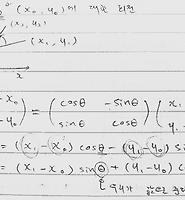 (x₀, y₀)에 대한 회전
(x₂, y₂)
(x₁, y₁)
x
- x₀
- y₀
= ( cosθ -sinθ
sinθ cosθ ) ( x₁
y₁ -
= (x₁ - x₀) cosθ - (y₁ - y₀) si
= (x₁ - x₀) sinθ + (y₁ - y₀) co